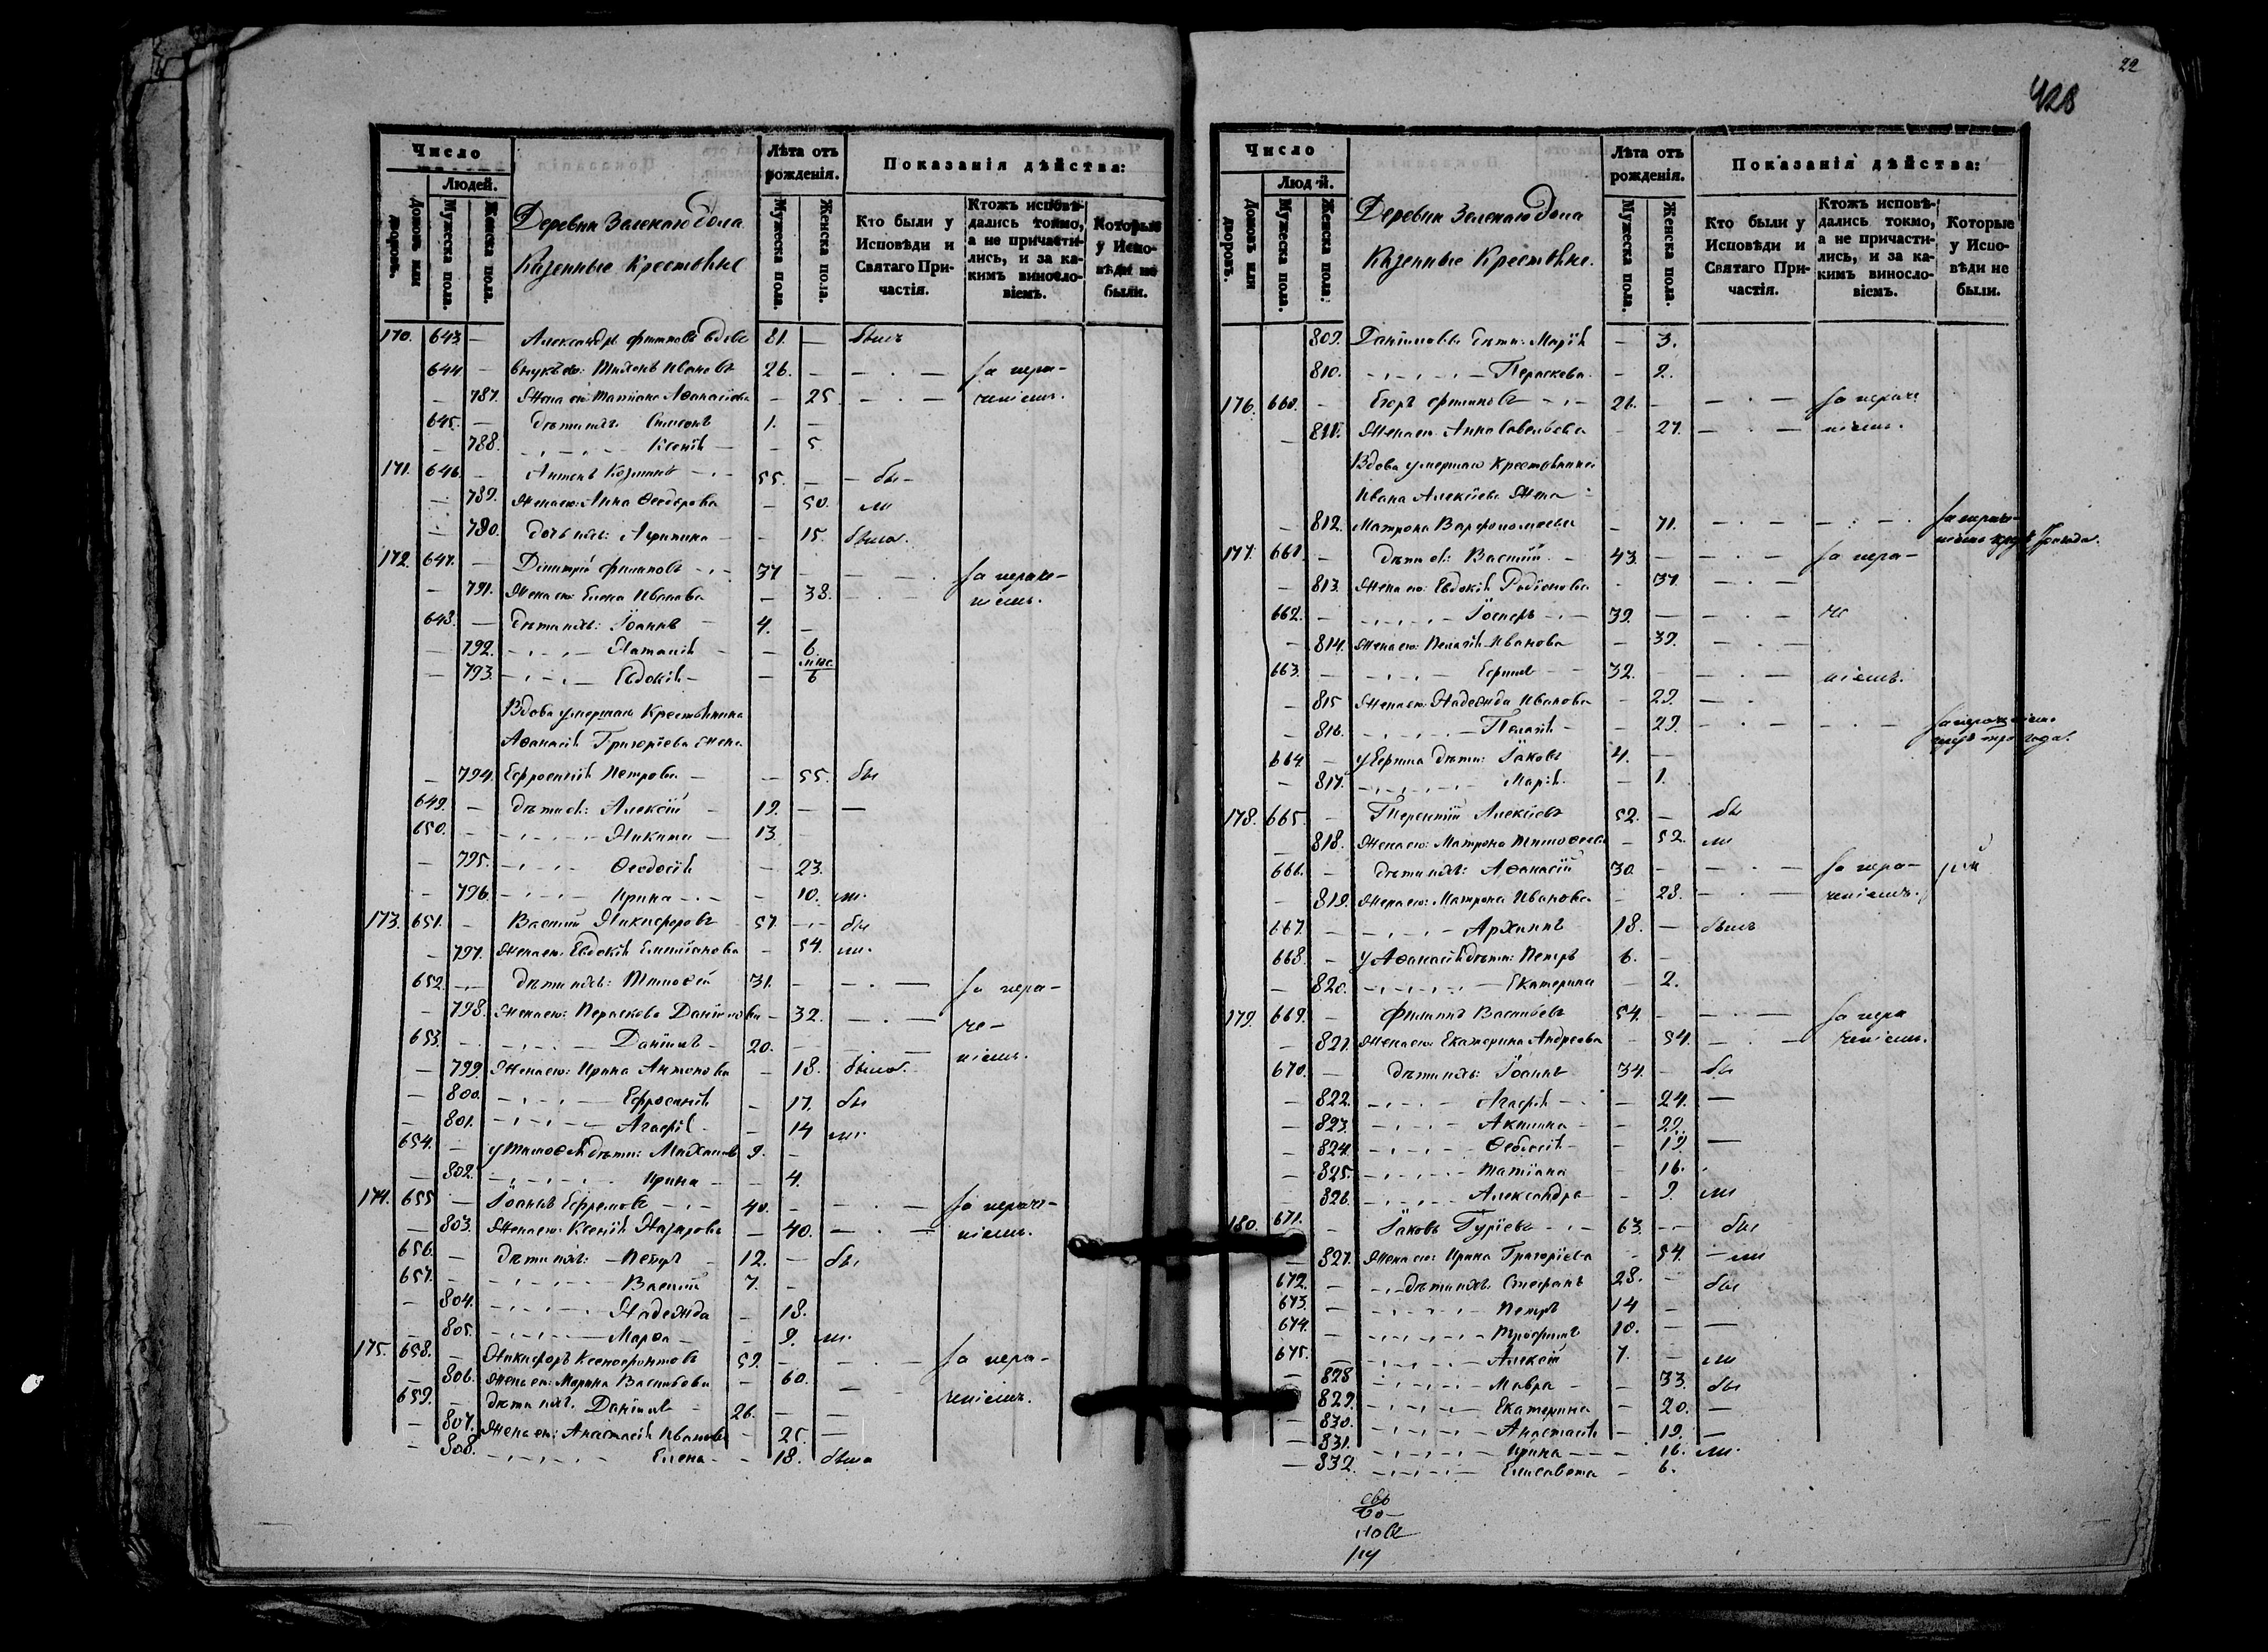 22
428
Число
Людей.
Домовъ или дворовъ.
Мужеска пола.
Женска пола.
Деревни Зеленаго дола
Казенные Крестьяне
Лѣта отъ рожденія.
Мужеска пола.
Женска пола.
Показанія дѣйства:
Кто были у Исповѣди и Святаго Причастія.
Ктожъ исповѣдались токмо, а не причастились, и за какимъ винословіемъ.
Которые у Исповѣди не были.
170. 643 — Александръ Филиповъ вдовъ 81. — былъ
644 — внукъ его: Тихонъ Ивановъ 26. — — . — за нера-
— 787. Жена его Татіана Аѳанасіева — 25 — . — ченіемъ.
645. — дѣти ихъ: Симеонъ 1. —
— 788. Ксенія — 5.
171. 646. — Антонъ Козминъ 55. — бы-
— 789. Жена его: Анна Ѳеодорова — 50. ли
— 790. дочь ихъ: Агрипина — 15. была.
172. 647. — Димитрій Филиповъ 37 — — . за нераче-
— 791. Жена его Елена Иванова — 38. — . — ніемъ.
648. — дѣти ихъ: Іоаннъ 4. —
— 792. Наталія — 6.
— 793. Евдокія — мѣс. 6
Вдова умершаго Крестьянина
Аѳанасія Григоріева жена
— 794. Ефросинія Петрова — 55. бы
649. — дѣти ея: Алексій 19. — —
650. — Никита 13. —
— 795. Ѳеодосія — 23.
— 796. Ирина — 10. ли.
173. 651. — Василій Никифоровъ 57. — бы
— 797. Жена его Евдокія Емеліанова — 54. ли.
652. — дѣти ихъ: Тимоѳей 31. — — . — за нера-
— 798. Жена его: Параскева Даніилова — 32. — . — че-
653. — Даніилъ 20. — — . — ніемъ.
— 799. Жена его: Ирина Антонова — 18. была.
— 800. Ефросинія — 17. бы
— 801. Агафія — 14 ли.
654. — у Тимоѳея дѣти: Михаилъ 9. —
— 802. Ирина — 4.
174. 655 — Іоаннъ Ефремовъ 40. — — . — за нераче-
— 803. Жена его: Ксенія Назарова — 40. — . — ніемъ.
656. — дѣти ихъ: Петръ 12. — бы
657. — Василій 7. —
— 804. Надежда — 18.
— 805. Марѳа — 9. ли.
175. 658. — Никифоръ Ксенофонтовъ 59. — — . — за нера-
— 806. Жена его: Марина Васильева — 60. — — ченіемъ.
659. — дѣти ихъ: Даніилъ 26. — —
— 807. Жена его: Анастасія Иванова — 25. —
— 808. Елена — 18. была
Число
Людей.
Домовъ или дворовъ.
Мужеска пола.
Женска пола.
Деревни Зеленаго дола
Казенные Крестьяне.
Лѣта отъ рожденія.
Мужеска пола.
Женска пола.
Показанія дѣйства:
Кто были у Исповѣди и Святаго Причастія.
Ктожъ исповѣдались токмо, а не причастились, и за какимъ винословіемъ.
Которые у Исповѣди не были.
809. Даніиловы дѣти: Марія — 3.
810. Параскева — 2.
176. 660. — Егоръ 26. — — . — за нераче
— 811. Жена его Анна Савельева — 27. — . — ніемъ.
Вдова умершаго крестьянина
Ивана Алексіева жена
— 812. Матрона Варфоломеева — 71. — . — — . — за нераче-
177. 661. — дѣти ея: Василій 43. — — . — за нера-
— 813. Жена его: Евдокія Родіонова — 37. — . —
662. — Іосифъ 39. — — . — че
— 814. Жена его: Пелагія Иванова — 39. — . —
663. — Ефимъ 32. — — . — ніемъ.
— 815 Жена его: Надежда Иванова — 29. — .
— 816. Пелагія — 29. — . — — . — за нераченіемъ
три года.
664 — у Ефима дѣти: Іаковъ 4. —
— 817. Марія — 1.
178. 665. — Терентій Алексіевъ 52. — бы
— 818. Жена его: Матрона Тимоѳеева — 52. ли
666. — дѣти ихъ: Аѳанасій 30. — — . — за нера-
— 819. Жена его: Матрона Иванова — 28. — . — ченіемъ.
667. — Архипъ 18. — былъ
668. — у Аѳанасія дѣти: Петръ 6. —
— 820. Екатерина — 2.
179. 669. — Филиппъ Васильевъ 54. — — . — за нера
— 821. Жена его: Екатерина Андреева — 54. — . — ченіемъ.
670. — дѣти ихъ: Іоаннъ 34. — бы
— 822. Агафія — 24. —
— 823. Акилина — 22.
— 824. Ѳеодосія — 19. —
— 825. Татіана — 16. .
— 826. Александра — 9. ли
180. 671. — Іаковъ Гуріевъ 63. — бы
— 827. Жена его: Ирина Григоріева — 54. — ли
672. — дѣти ихъ: Стефанъ 28. — бы
673. — Петръ 14 —
674. — Трофимъ 10. — —
675. — Алексій 7. — ли
— 828 Мавра — 33. бы
— 829. Екатерина — 20. —
— 830. Анастасія — 19. —
— 831. Ирина — 16. ли.
— 832. Елисавета — 6.